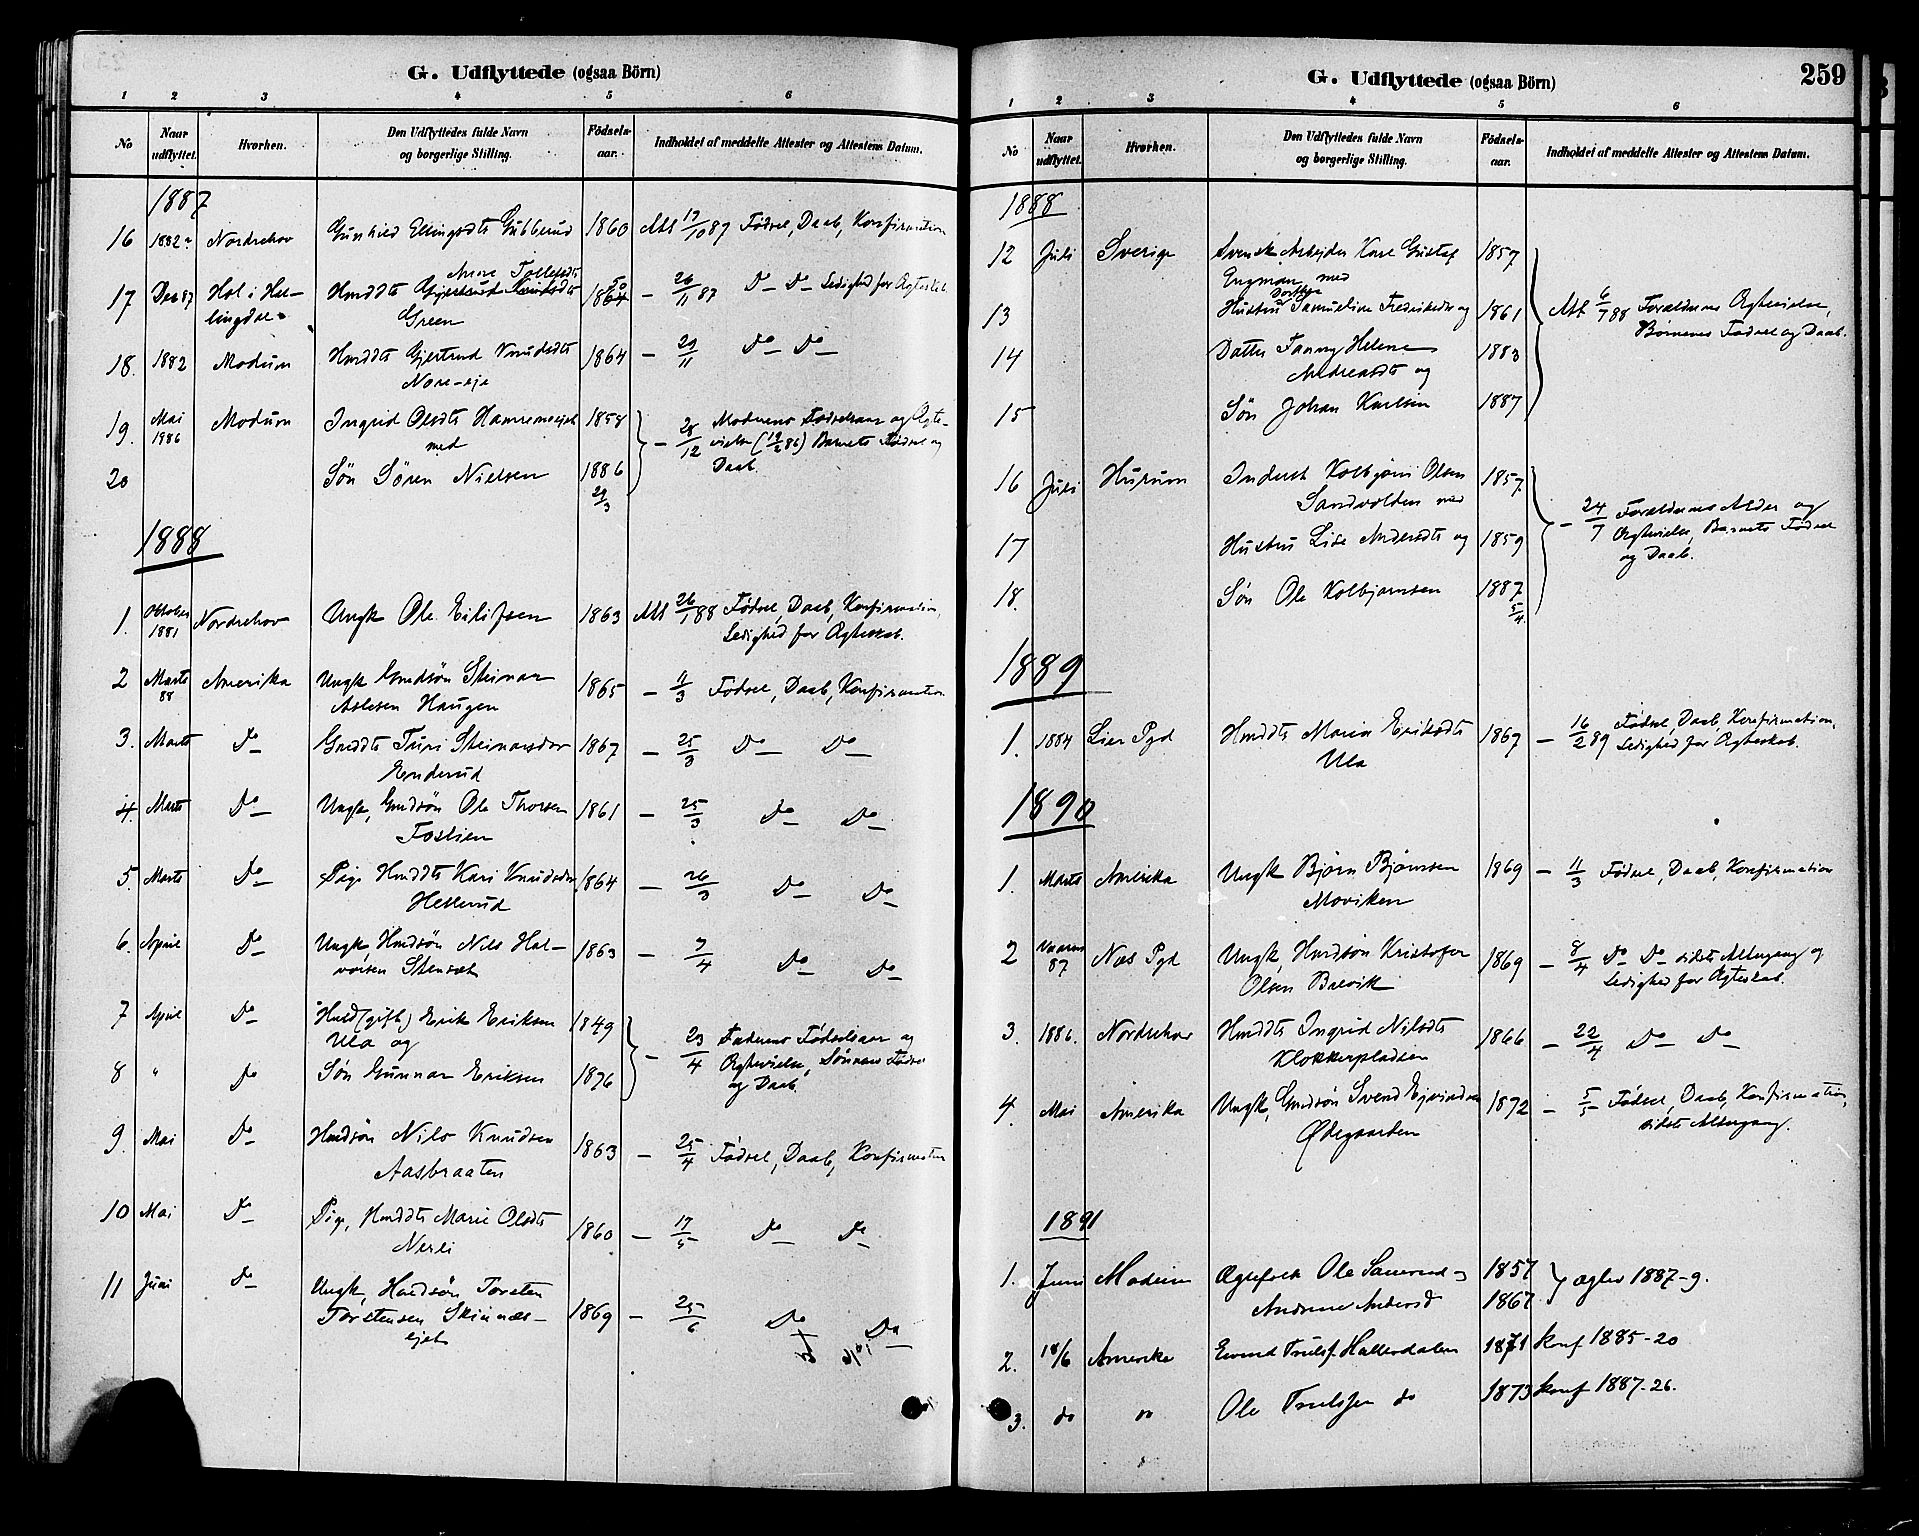 G. Udflyttede (ogsaa Börn)
1 2 3 4 5 6
No Naar udflyttet. Hvorhen. Den Udflyttedes fulde Navn og borgerlige Stilling. Födsels-aar. Indholdet af meddelte Attester og Attestens Datum.
1887
16 1882 Nordrehov Gunhild Ellingsdt Gubberud 1860 Att 17/10 87 Fødsel, Daab, Konfirmation
Anne Tollefsdt
17 Dec 87 Hol i Hallingdal Hmddt Gjertrud Knudsdt 1864 - 26/11 87 Do Do Ledighed for Ægteskab.
Green
18. 1882 Modum Hmddt Gjertrud Knudsdt 1864 - 29/11 Do Do
Nore-eje
19. Mai 1886 Modum Ingrid Olsdt 1858 - 28/12 Moderens Fødselsaar og Ægte-
med vielse (19/2 86) Barnets Fødsel og
20 Søn Søren Nielsen 1886 29/3 Daab.
1888
1. Oktober 1881 Nordrehov Ungk Ole Eilifsen 1863 Att 26/1 88 Fødsel, Daab, Konfirmation,
Ledighed for Ægteskab.
2 Marts 88 Amerika Ungk Gmdsøn Steinar 1865 - 11/3 Fødsel, Daab, Konfirmation
Aslesen Haugen
3. Marts Do Gmddt Turi Steinarsdor 1867 - 25/3 Do Do
Enderud
4. Marts Do Ungk, Gmdsøn Ole Thorsen 1861 - 25/3 Do Do
5. Marts Do Pige Hmddt Kari Knudsdr 1864 - 26/3 Do Do
Hesterud
6. April Do Ungk, Hmdsøn Nils Hal- 1863 - 7/4 Do Do
vorsen
7 April Do Husmd (gift) Erik Eriksen 1849 - 23/4 Faderens Fødselsaar og
Ula og Ægtevielse, Sønnens Fødsel
8 " Do Søn Gunnar Eriksen 1876 og Daab.
9. Mai Do Hmdsøn Nils Knudsen 1863 - 25/4 Fødsel, Daab, Konfirmation
Aasbraaten
10 Mai Do Pige, Hmddt Marie Olsdt 1860 - 17/5 Do Do
Nerli
11 Juni Do Ungk, Hmdsøn Torsten
Torstensen Skinnes- 1869 - 25/6 Do Do
ejet
G. Udflyttede (ogsaa Börn) 259
1 2 3 4 5 6
No Naar udflyttet. Hvorhen. Den Udflyttedes fulde Navn og borgerlige Stilling. Födsels-aar. Indholdet af meddelte Attester og Attestens Datum.
1888
12 Juli Sverige Svensk Arbejder Karl Gustaf 1857
Engman med
13 Hustru Samueline Fredriksdr og 1861 Att 6/7 88 Forældrenes Ægtevielse,
Børnenes Fødsel og Daab.
14 Datter Fanny Helene 1883
Andreasdt og
15 Søn Johan Karlsen 1887
16 Juli Hurum Inderst Kolbjørn Olsen 1857
Sandvolden med - 24/7 Forældrenes Alder og
17 Hustru Lise Andersdt og 1859 Ægtevielse, Barnets Fødsel
og Daab.
18. Søn Ole Kolbjørnsen 1887 5/4
1889
1. 1884 Lier Pgd Hmddt Maria Eriksdt 1867 - 16/2 89 Fødsel, Daab, Konfirmation,
Ula Ledighed for Ægteskab.
1890
1. Marts Amerika Ungk Bjørn Bjørnsen 1869 - 11/3 Fødsel, Daab, Konfirmation
Moviken
2 Vaaren 87 Næs Pgd Ungk, Hmdsøn Kristofer 1869 - 8/4 Do Do sidste Altergang og
Olsen Brevik Ledighed for Ægteskab.
3. 1886. Nordrehov Hmddt Ingrid Nilsdt 1866 - 22/4 Do Do
Klokkerpladsen
4. Mai Amerika Ungk, Gmdsøn Svend Ejvindsen 1872 - 5/5 Fødsel, Daab, Konfirmation,
Ødegaarden sidste Altergang.
1891
1. Juni Modum Ægtefolk Ole Saurud og 1857 ægtev 1887-9.
Andrine Andersd 1867
2. 18/6 Amerika Eivind Trulsf. Hallerdalen 1871 konf 1885-20
3. do do Ole Trulssen do 1873 konf 1887-26.